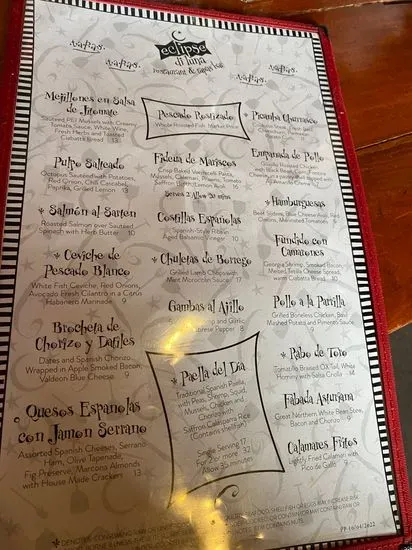 Tapas
Tapas
Tapas
Tapas
eclipse
di luna
restaurant & tapas bar
Mejillones en Salsa
de Jitomate
Sauteed PEI Mussels with Creamy
Tomato Sauce, White Wine,
Fresh Herbs and Toasted
Ciabatta Bread 13
Pulpo Salteado
Octopus Sauteed with Potatoes,
Red Onion, Chili Cascabel,
Paprika, Grilled Lemon 13
* Salmón al Sarten
Roasted Salmon over Sauteed
Spinach with Herb Butter 10
* Ceviche de
Pescado Blanco
White Fish Ceviche, Red Onions,
Avocado Fresh Cilantro in a Citrus
Habanero Marinade 9
Brocheta de
Chorizo y Datiles
Dates and Spanish Chorizo
Wrapped in Apple Smoked Bacon,
Valdeon Blue Cheese 9
Quesos Españolas
con Jamon Serrano
Assorted Spanish Cheeses, Serrano
Ham, Olive Tapenade,
Fig Preserve, Marcona Almonds
with House Made Crackers 13
Pescado Rostizado
Whole Roasted Fish Market Price
Fideua de Mariscos
Crisp Baked Vermicelli Pasta,
Mussels, Calamari, Shrimp,
Saffron Broth Lemon Aioli 16
Serves 2 Allow 20 mins
Costillas Españolas
Spanish-Style Ribs in
Aged Balsamic Vinegar 10
* Chuletas de Borrego
Grilled Lamb Chops with
Mint Moroccan Sauce 17
Gambas al Ajillo
Shrimp and Garlic
Pepper 8
* Paella del Dia
Traditional Spanish Paella,
with Peas, Shrimp, Squid,
Mussels, Chicken and
Chorizo with
Saffron Calasparra Rice
(Contains shellfish)
Single Serving 17
For 2 or more 32
Allow 35 minutes
* Picanha Churrasco
Steak, Fresh
Chimichurri,
Potatoes
Empanada de Pollo
Chicken
with Black Bean, Corn, Fontina
Cheese in a
Topped with
Aji Amarillo Crema
* Hamburguesas
Beef Sliders, Blue Cheese Aioli, Red
Onions, Marinated Tomatoes
Fundido con
Camarones
Georgia Shrimp, Smoked Bacon,
Melted Tetilla Cheese Spread,
warm Ciabatta Bread 10
Pollo a la Parilla
Grilled Boneless Chicken, Basil
Mashed Potato and Pimento Sauce
* Rabo de Toro
Tomatillo Braised OX Tail, White
Hominy with Salsa Criolla 14
Fabada Asturiana
Great Northern White Bean Stew,
Bacon and Chorizo 9
Calamares Fritos
Lightly Fried Calamari with
Pico de Gallo 9
PP-10/04/2022